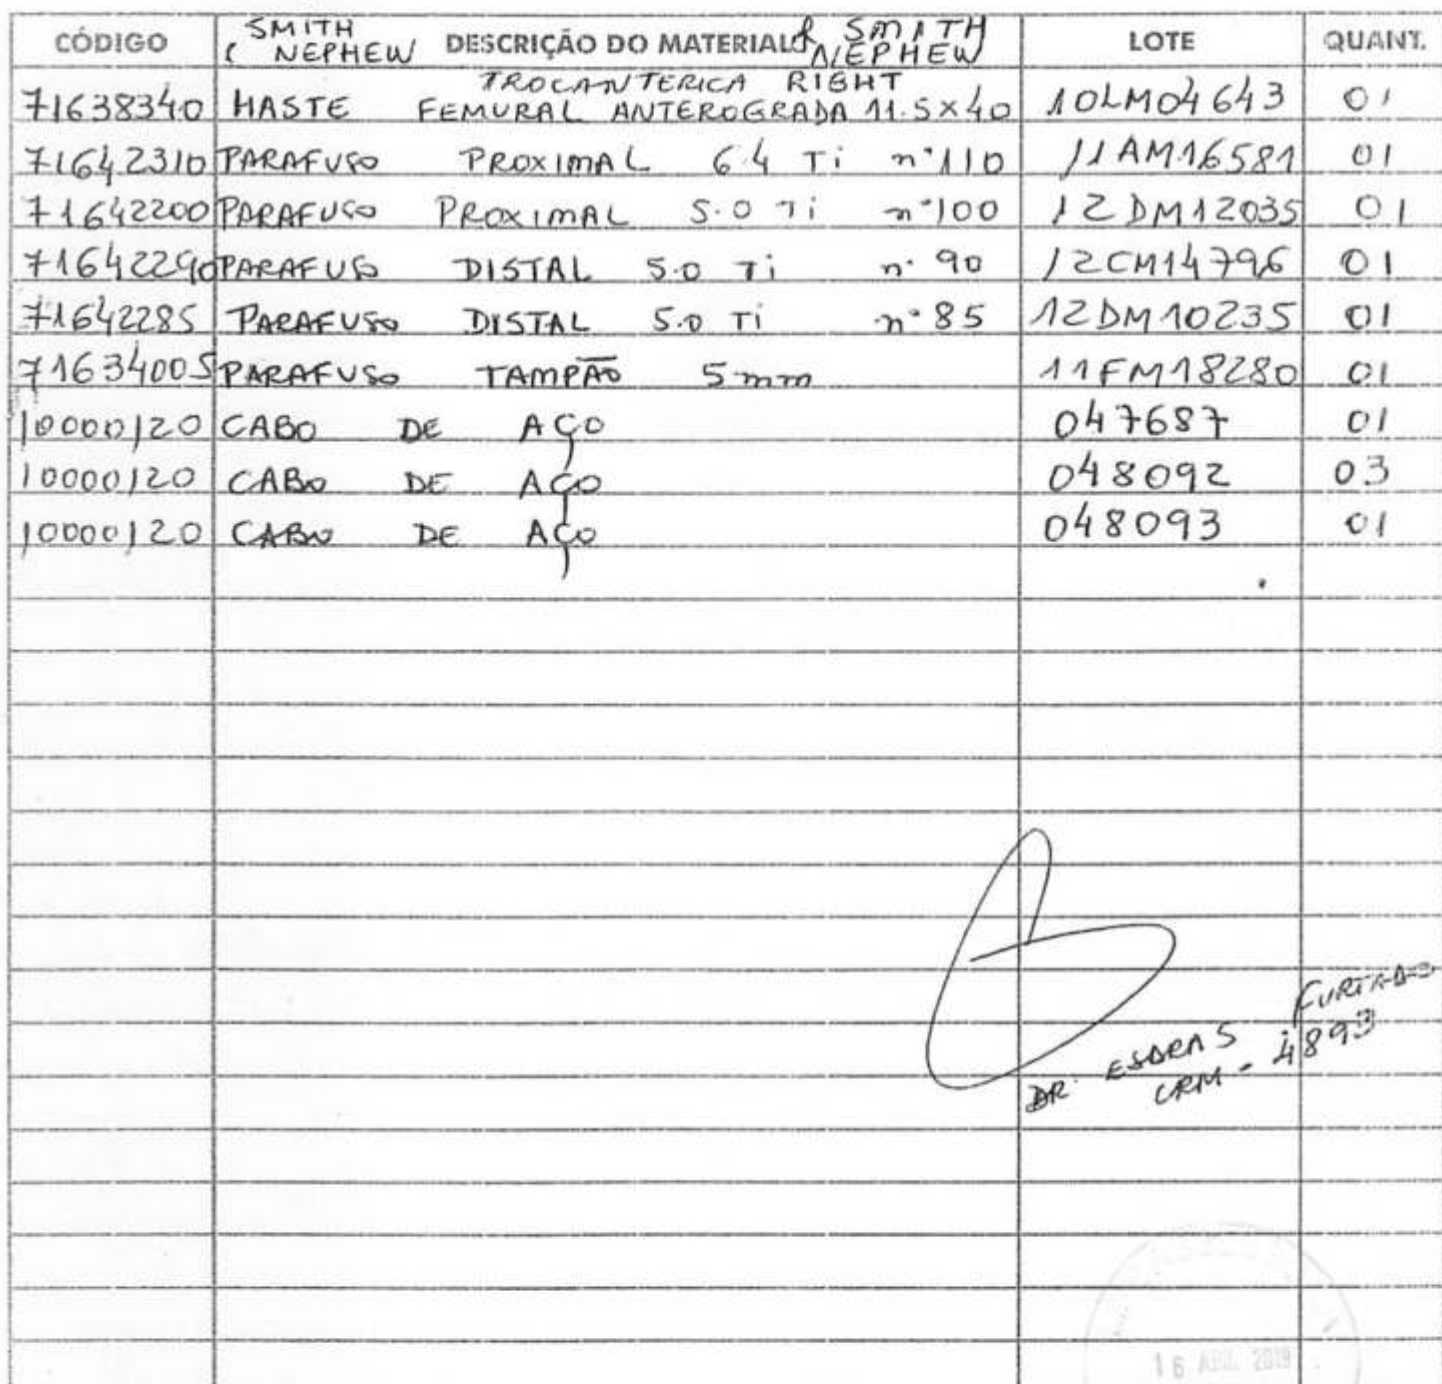 CÓDIGO SMITH & NEPHEW DESCRIÇÃO DO MATERIAL & SMITH NEPHEW LOTE QUANT.
71638340 HASTE TROCANTERICA RIGHT FEMURAL ANTEROGRADA 11.5X40 10LM04643 01
71642310 PARAFUSO PROXIMAL 6.4 Ti nº110 11AM16581 01
71642200 PARAFUSO PROXIMAL 5.0 Ti nº100 12DM12035 01
71642290 PARAFUSO DISTAL 5.0 Ti nº 90 12CM14796 01
71642285 PARAFUSO DISTAL 5.0 Ti nº 85 12DM10235 01
71634005 PARAFUSO TAMPÃO 5mm 11FM18280 01
10000120 CABO DE AÇO 047687 01
10000120 CABO DE AÇO 048092 03
10000120 CABO DE AÇO 048093 01
DR. ESDRAS FURTADO
CRM - 4893
16 ABR. 2019